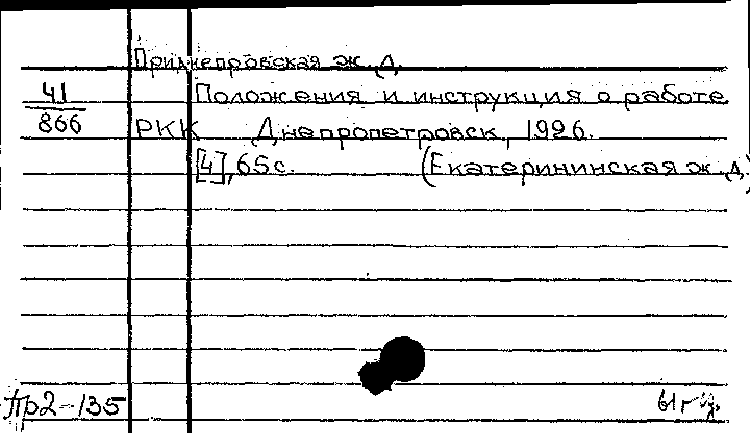 Приднепровская ж. д.
41
866
Положения и инструкция о работе
РКК Днепропетровск, 1926.
[4], 65 с. (Екатерининская ж. д.)
Пр2-135
61г